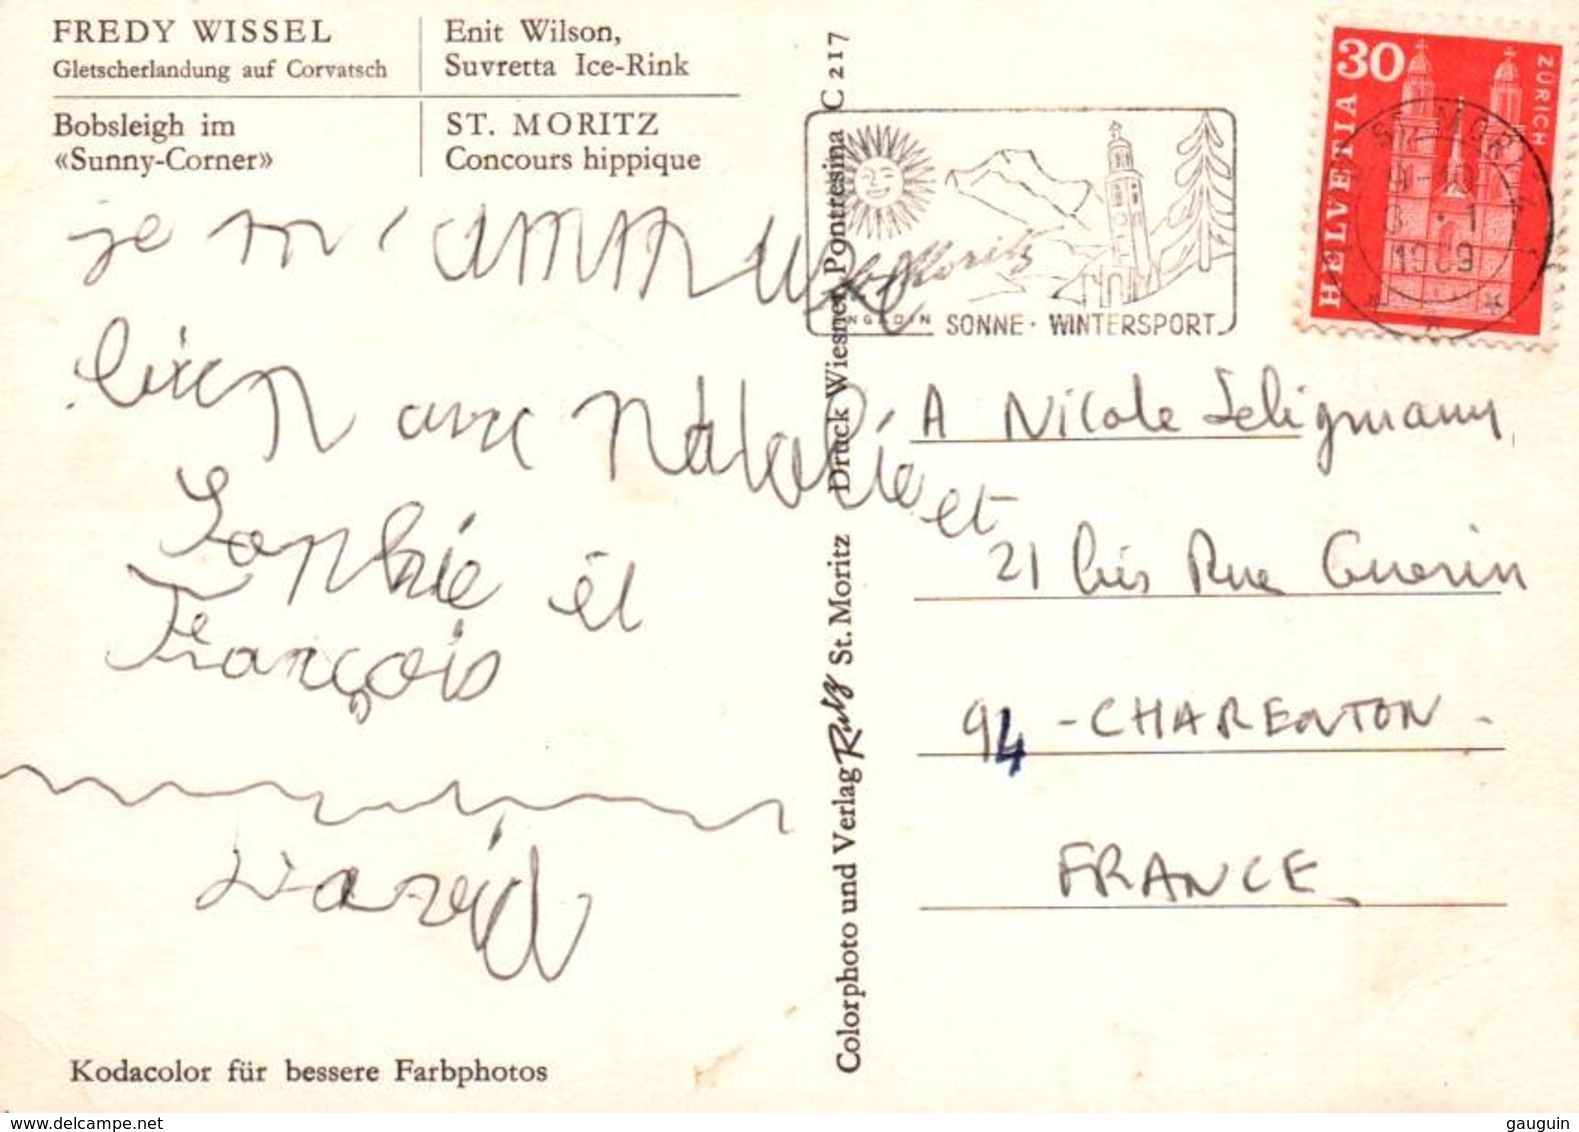 FREDY WISSEL
Gletscherlandung auf Corvatsch
Enit Wilson,
Suvretta Ice-Rink
Bobsleigh im
«Sunny-Corner»
ST. MORITZ
Concours hippique
je m'ammuse
bien avec Natalie et
Sophie et
François
David
Kodacolor für bessere Farbphotos
Colorphoto und Verlag Rutz St. Moritz Druck Wiesner, Pontresina C 217
St. Moritz
ENGADIN SONNE · WINTERSPORT
30
HELVETIA
ZÜRICH
ST. MORITZ
1969
A Nicole Seligmann
21 bis Rue Guerin
94 - CHARENTON -
FRANCE
www.delcampe.net
gauguin